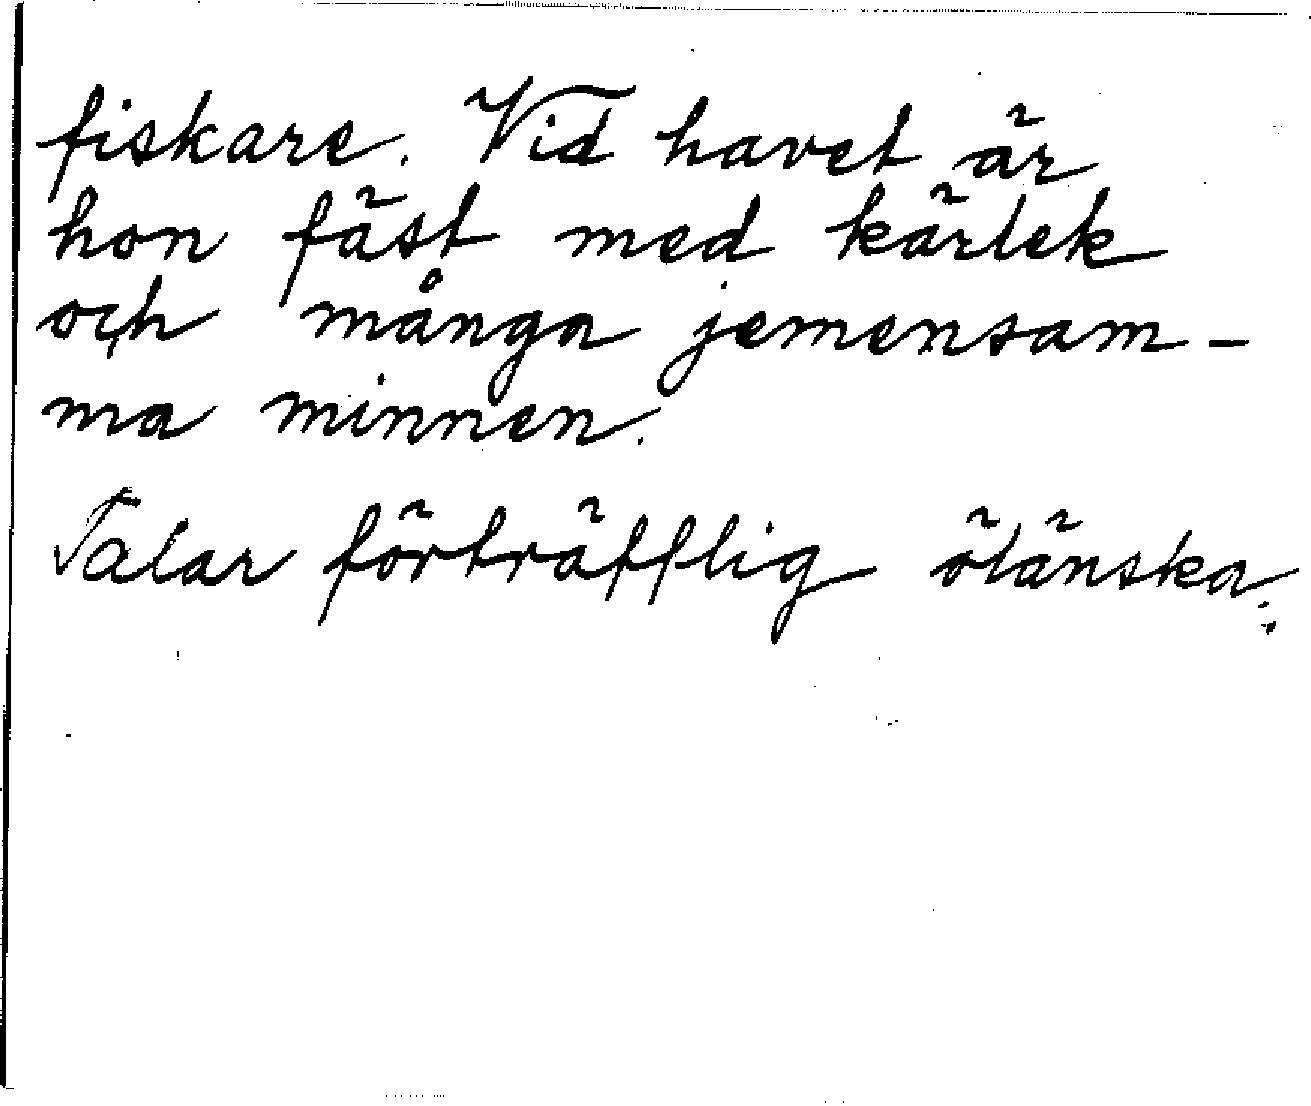 fiskare. Vid havet är
hon fäst med kärlek
och många jemensam-
ma minnen.
Talar förträfflig ölänska.